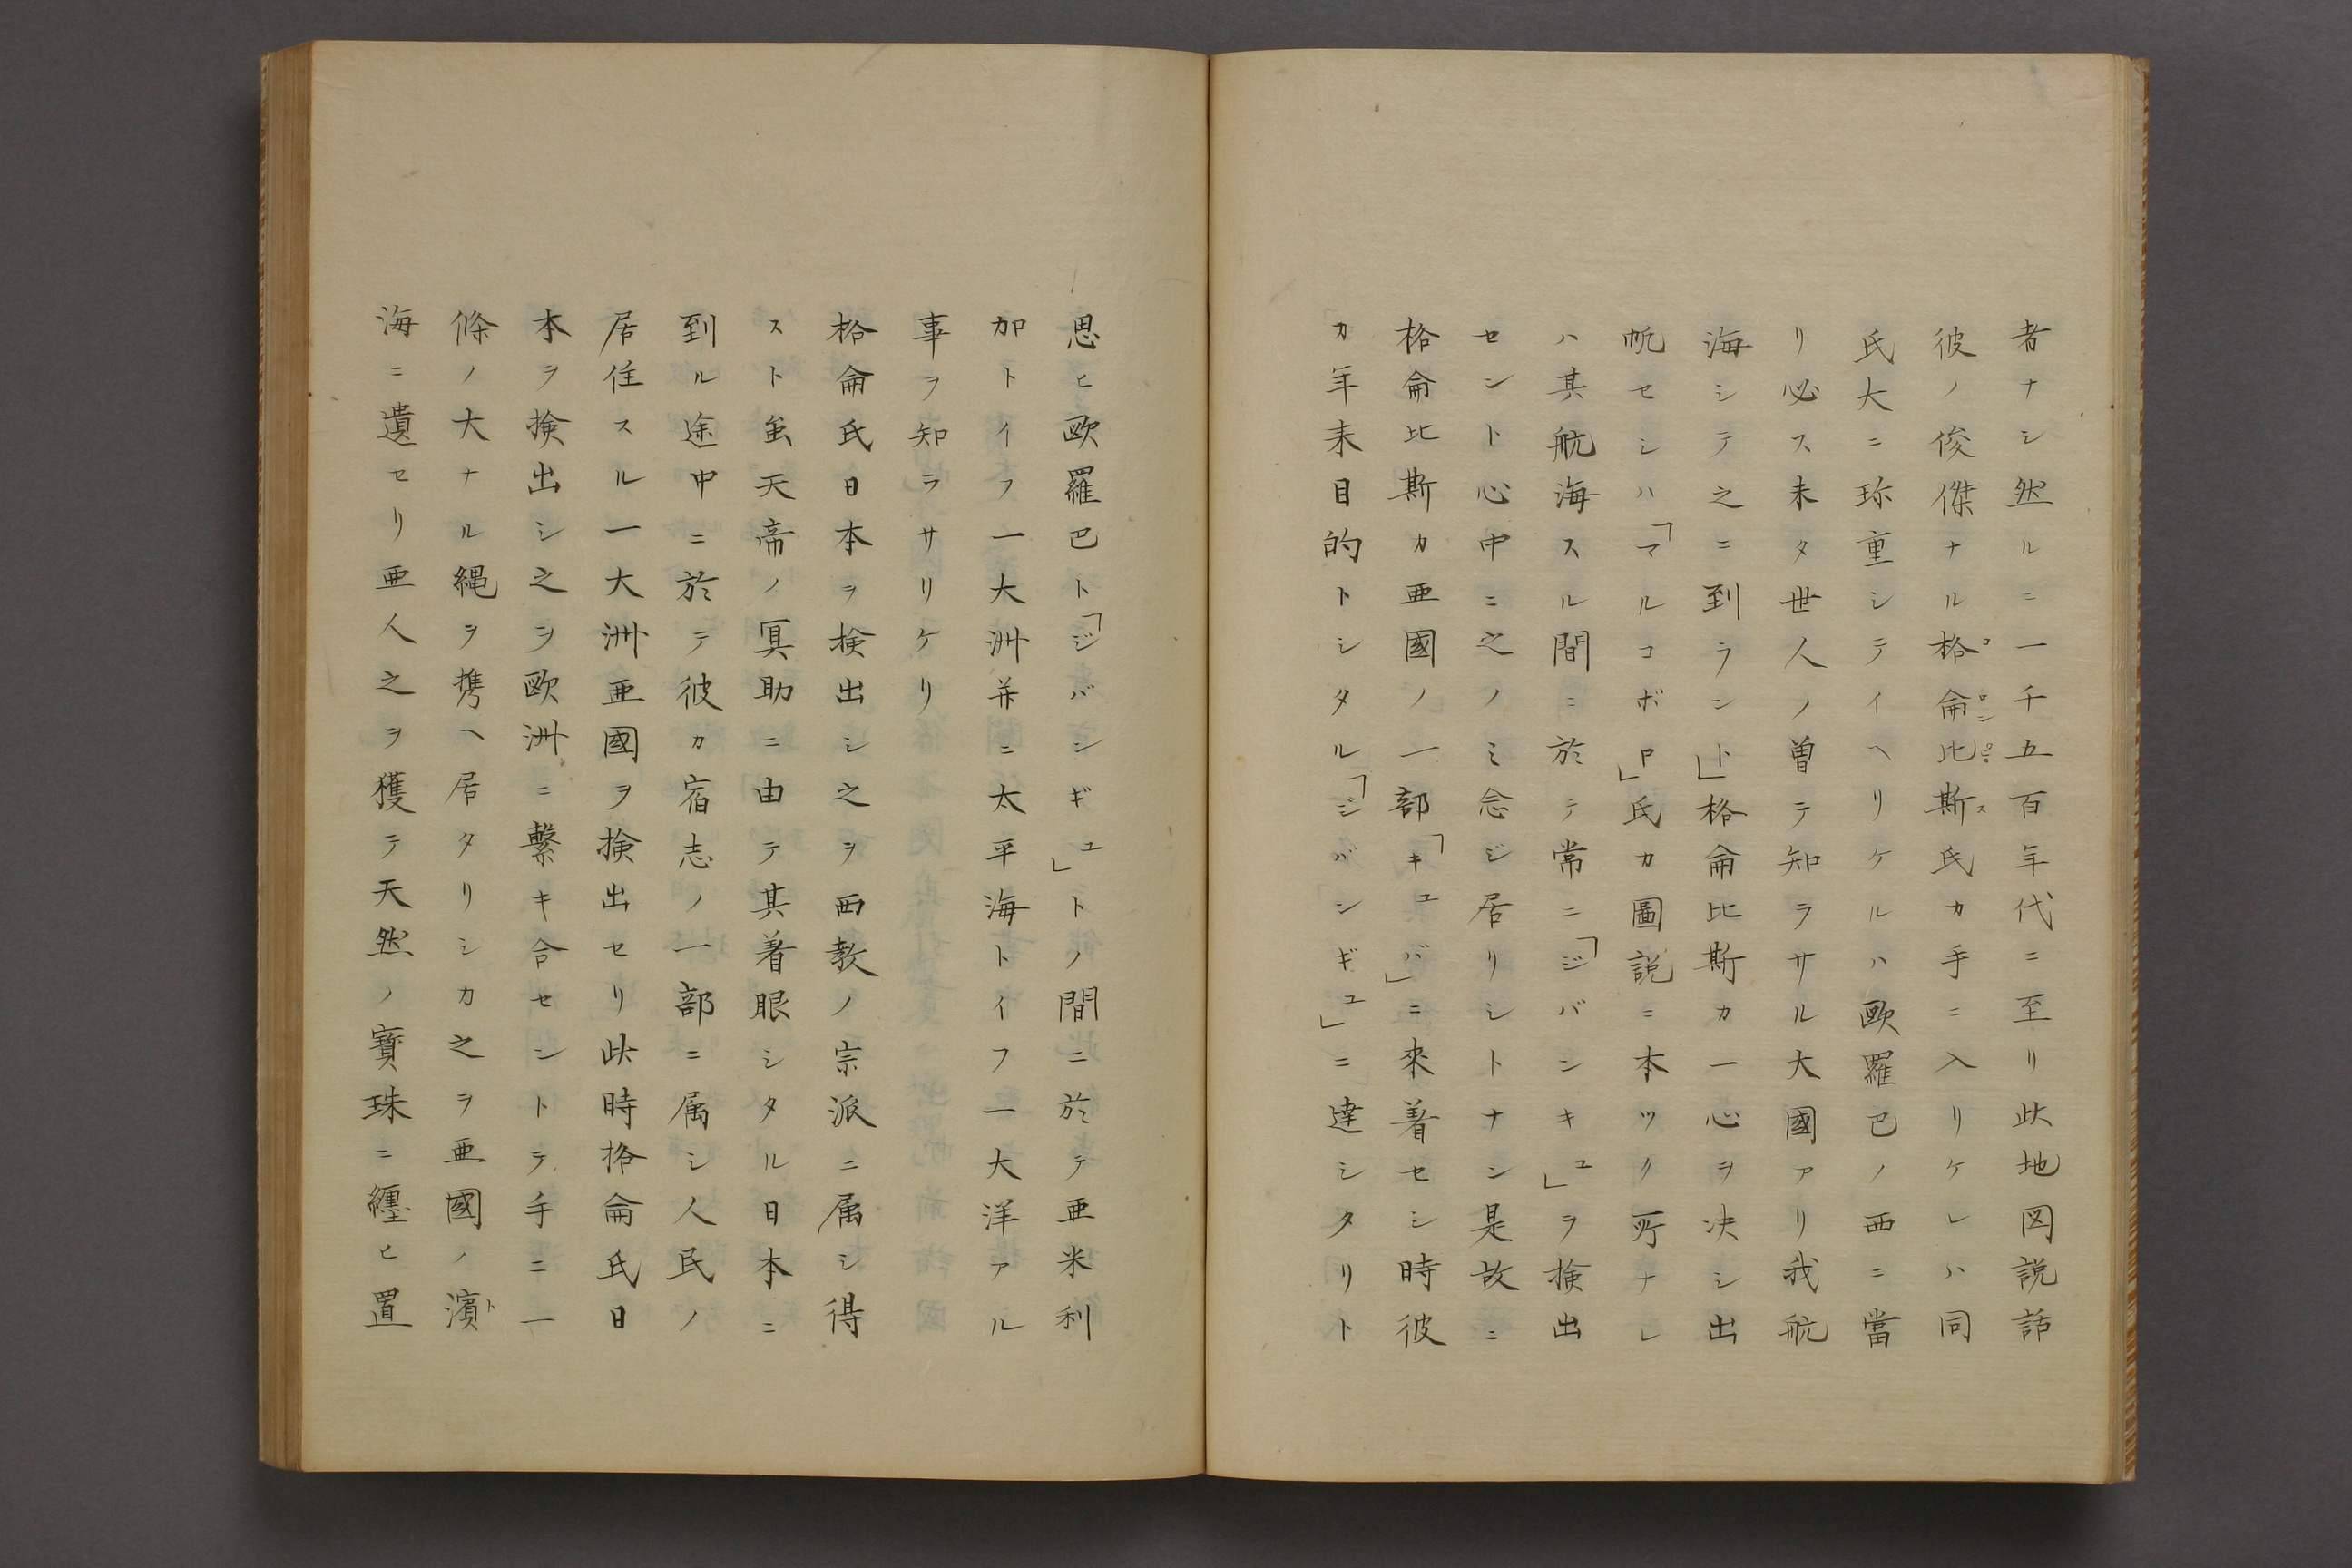 者ナシ然ルニ一千五百年代ニ至リ此地図説話
彼ノ俊傑ナル格侖比斯氏カ手ニ入リケレハ同
氏大ニ珎重シテイヘリケルハ歐羅巴ノ西ニ當
リ必ス未タ世人ノ曽テ知ラサル大國アリ我航
海シテ之ニ到ラント」格侖比斯カ一心ヲ决シ出
帆セシハ「マルコボロ」氏カ圖説ニ本ツク所ナレ
ハ其航海スル間ニ於テ常ニ「ジバンキユ」ヲ検出
セント心中ニ之ノミ念ジ居リシトナン是故ニ
格侖比斯カ亜國ノ一部「キユバ」ニ來着セシ時彼
カ年来目的トシタル「ジバンギユ」ニ達シタリト
思ヒ歐羅巴ト「ジバンギユ」トノ間ニ於テ亜米利
加トイフ一大洲并ニ太平海トイフ一大洋アル
事ヲ知ラサリケリ
格侖氏日本ヲ検出シ之ヲ西教ノ宗派ニ属シ得
スト虽天帝ノ冥助ニ由テ其着眼シタル日本ニ
到ル途中ニ於テ彼カ宿志ノ一部ニ属シ人民ノ
居住スル一大洲亜國ヲ検出セリ此時格侖氏日
本ヲ検出シ之ヲ歐洲ニ繋キ合セントテ手ニ一
條ノ大ナル縄ヲ携ヘ居タリシカ之ヲ亜國ノ濱ト
海ニ遺セリ亜人之ヲ獲テ天然ノ寶珠ニ纏ヒ置